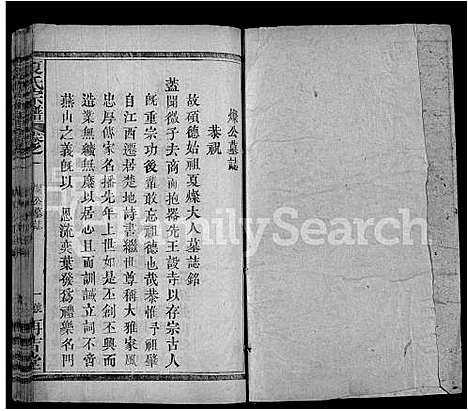 燦公墓誌
恭祝
故碩德始祖夏燦大人墓誌銘
蓋聞微子去商而抱器先王設寺以存宗古人
既重宗功後輩敢忘祖德也哉恭惟予祖肇
自江西遷居楚地詩書繼世尊稱大雅家風
忠厚傳家名播先年上世如是丕創丕興而
造業無纎無靡以居心且而訓誡立詞不啻
燕山之義既以恩流奕葉發為禮樂名門
夏氏宗譜
公墓誌
FamilySearch